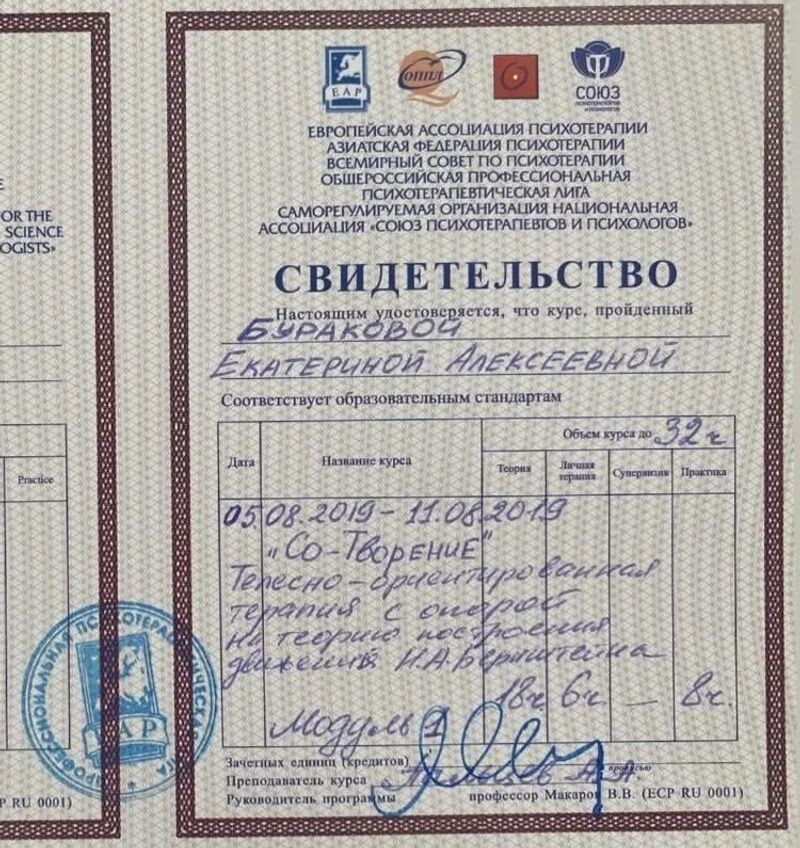 OR THE
SCIENCE
OGISTS»
Practice
P RU 0001)
ЕАР
ОППЛ
СОЮЗ
ЕВРОПЕЙСКАЯ АССОЦИАЦИЯ ПСИХОТЕРАПИИ
АЗИАТСКАЯ ФЕДЕРАЦИЯ ПСИХОТЕРАПИИ
ВСЕМИРНЫЙ СОВЕТ ПО ПСИХОТЕРАПИИ
ОБЩЕРОССИЙСКАЯ ПРОФЕССИОНАЛЬНАЯ
ПСИХОТЕРАПЕВТИЧЕСКАЯ ЛИГА
САМОРЕГУЛИРУЕМАЯ ОРГАНИЗАЦИЯ НАЦИОНАЛЬНАЯ
АССОЦИАЦИЯ «СОЮЗ ПСИХОТЕРАПЕВТОВ И ПСИХОЛОГОВ»
СВИДЕТЕЛЬСТВО
Настоящим удостоверяется, что курс, пройденный
БУРАКОВОЙ
ЕКАТЕРИНОЙ АЛЕКСЕЕВНОЙ
Соответствует образовательным стандартам
Объем курса до 32 ч
Дата Название курса Теория Личная терапия Супервизия Практика
05.08.2019 - 11.08.2019
"Со-Творение"
Телесно-ориентированная
терапия с опорой
на теорию построения
движений Н.А.Бернштейна
18ч 6ч — 8ч.
Модуль 1
Зачетных единиц (кредитов)
прописью
Преподаватель курса А.А.
Руководитель программы профессор Макаров В.В. (ECP RU 0001)
ЕАР